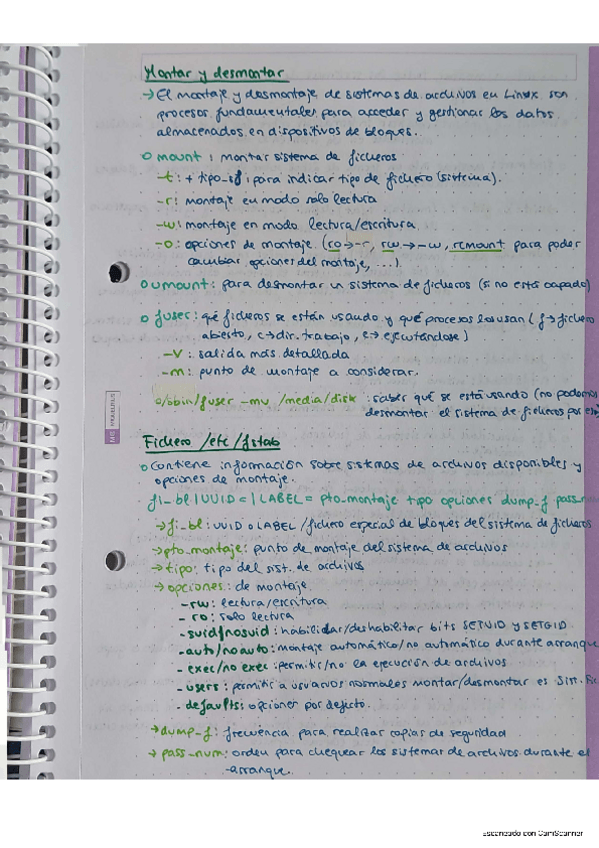 Montar y desmontar
→ El montaje y desmontaje de sistemas de archivos en Linux son
procesos fundamentales para acceder y gestionar los datos
almacenados en dispositivos de bloques.
o mount : montar sistema de ficheros
-t : + tipo_sf : para indicar tipo de fichero (sistema).
-r : montaje en modo solo lectura
-w : montaje en modo lectura/escritura.
-o : opciones de montaje (ro → -r, rw → -w, remount para poder
cambiar opciones del montaje, ...)
o umount : para desmontar un sistema de ficheros (si no está ocupado)
o fuser : qué ficheros se están usando y qué procesos los usan (f → fichero
abierto, c → dir. trabajo, e → ejecutándose)
-v : salida más detallada
-m : punto de montaje a considerar.
o/sbin/fuser -mv /media/disk : saber qué se está usando (no podemos
desmontar el sistema de ficheros por
Fichero /etc/fstab
o Contiene información sobre sistemas de archivos disponibles y
opciones de montaje.
fi_bl|UUID=|LABEL= pto_montaje tipo opciones dump_f pass_
→ fi_bl : UUID o LABEL / fichero especial de bloques del sistema de ficheros
→ pto_montaje : punto de montaje del sistema de archivos
→ tipo : tipo del sist. de archivos
→ opciones : de montaje
- rw : lectura/escritura
- ro : solo lectura
- suid/nosuid : habilidar/deshabilitar bits SETUID y SETGID
- auto/noauto : montaje automático/no automático durante arranque
- exec/no exec : permitir/no la ejecución de archivos
- users : permitir a usuarios normales montar/desmontar es Sist.
- defaults : opciones por defecto.
→ dump_f : frecuencia para realizar copias de seguridad
→ pass_num : orden para chequear los sistemas de archivos durante el
arranque.
Escaneado con CamScanner